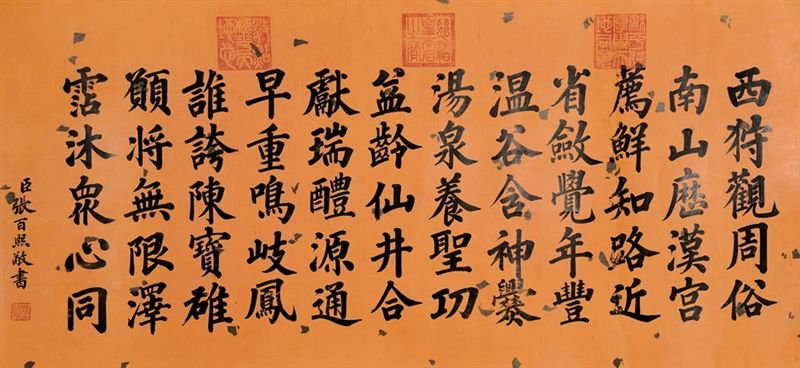 西狩觀周俗
南山歷漢宮
薦鮮知路近
省斂覺年豐
温谷含神爨
湯泉養聖功
益齡仙井合
獻瑞醴源通
早重鳴岐鳳
誰誇陳寶雄
願將無限澤
霑沐眾心同
臣張百熙敬書